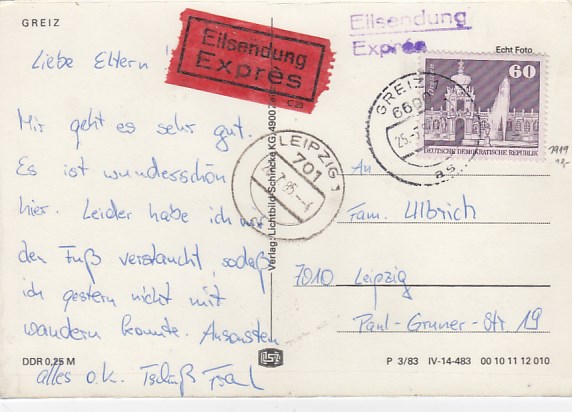 GREIZ
Liebe Eltern !
Mir geht es sehr gut.
Es ist wunderschön
hier. Leider habe ich mir
den Fuß verstaucht, sodaß
ich gestern nicht mit
wandern konnte. Ansonsten
alles o.k. Tschüß
DDR 0,25 M
Eilsendung
Exprès
C 23
Eilsendung
Exprès
Echt Foto
60
DEUTSCHE DEMOKRATISCHE REPUBLIK
GREIZ 1
6600
as
LEIPZIG 1
701
Verlag: Lichtbild-Schincke KG, 4900
An
Fam. Ulbrich
7010 Leipzig
Paul-Gruner-Str 19
P 3/83 IV-14-483 00 10 11 12 010